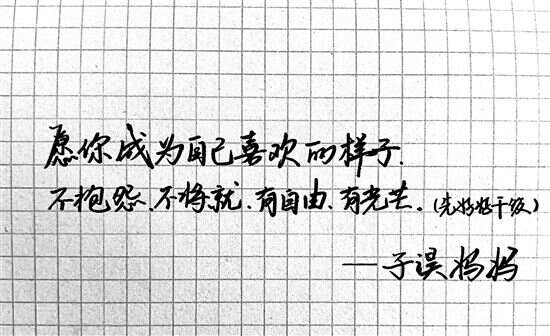 愿你成为自己喜欢的样子.
不抱怨、不将就、有自由、有光芒.(先好好干饭)
——子误妈妈